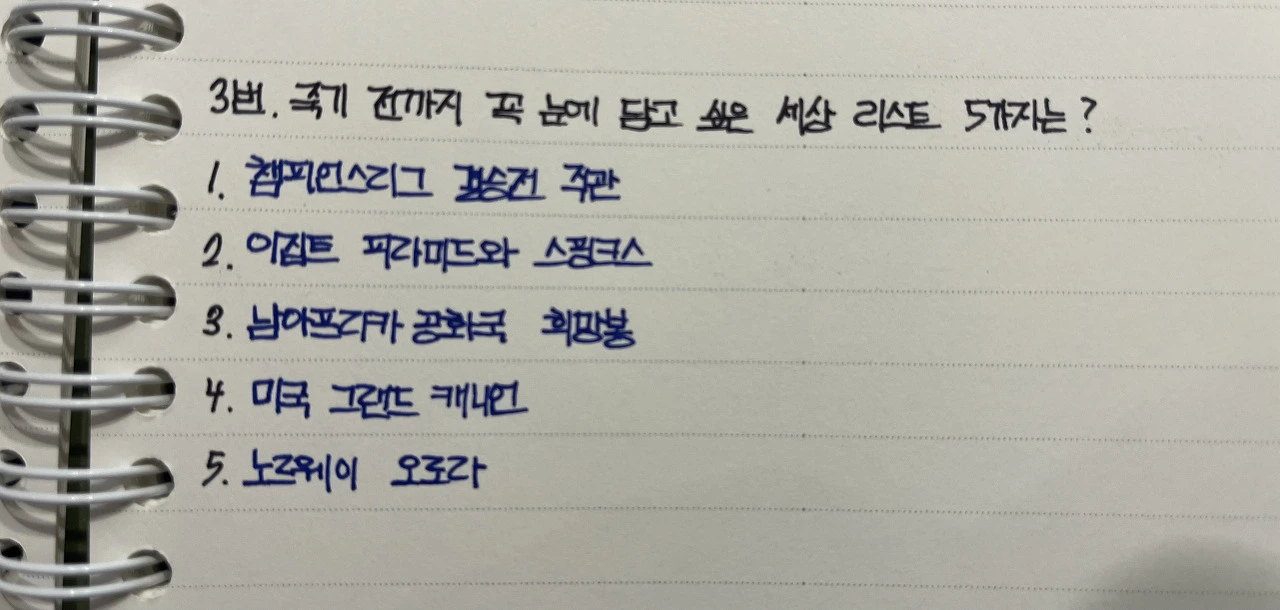 3번. 죽기 전까지 꼭 눈에 담고 싶은 세상 리스트 5가지는?
1. 챔피언스리그 결승전 직관
2. 이집트 피라미드와 스핑크스
3. 남아프리카 공화국 희망봉
4. 미국 그랜드 캐니언
5. 노르웨이 오로라